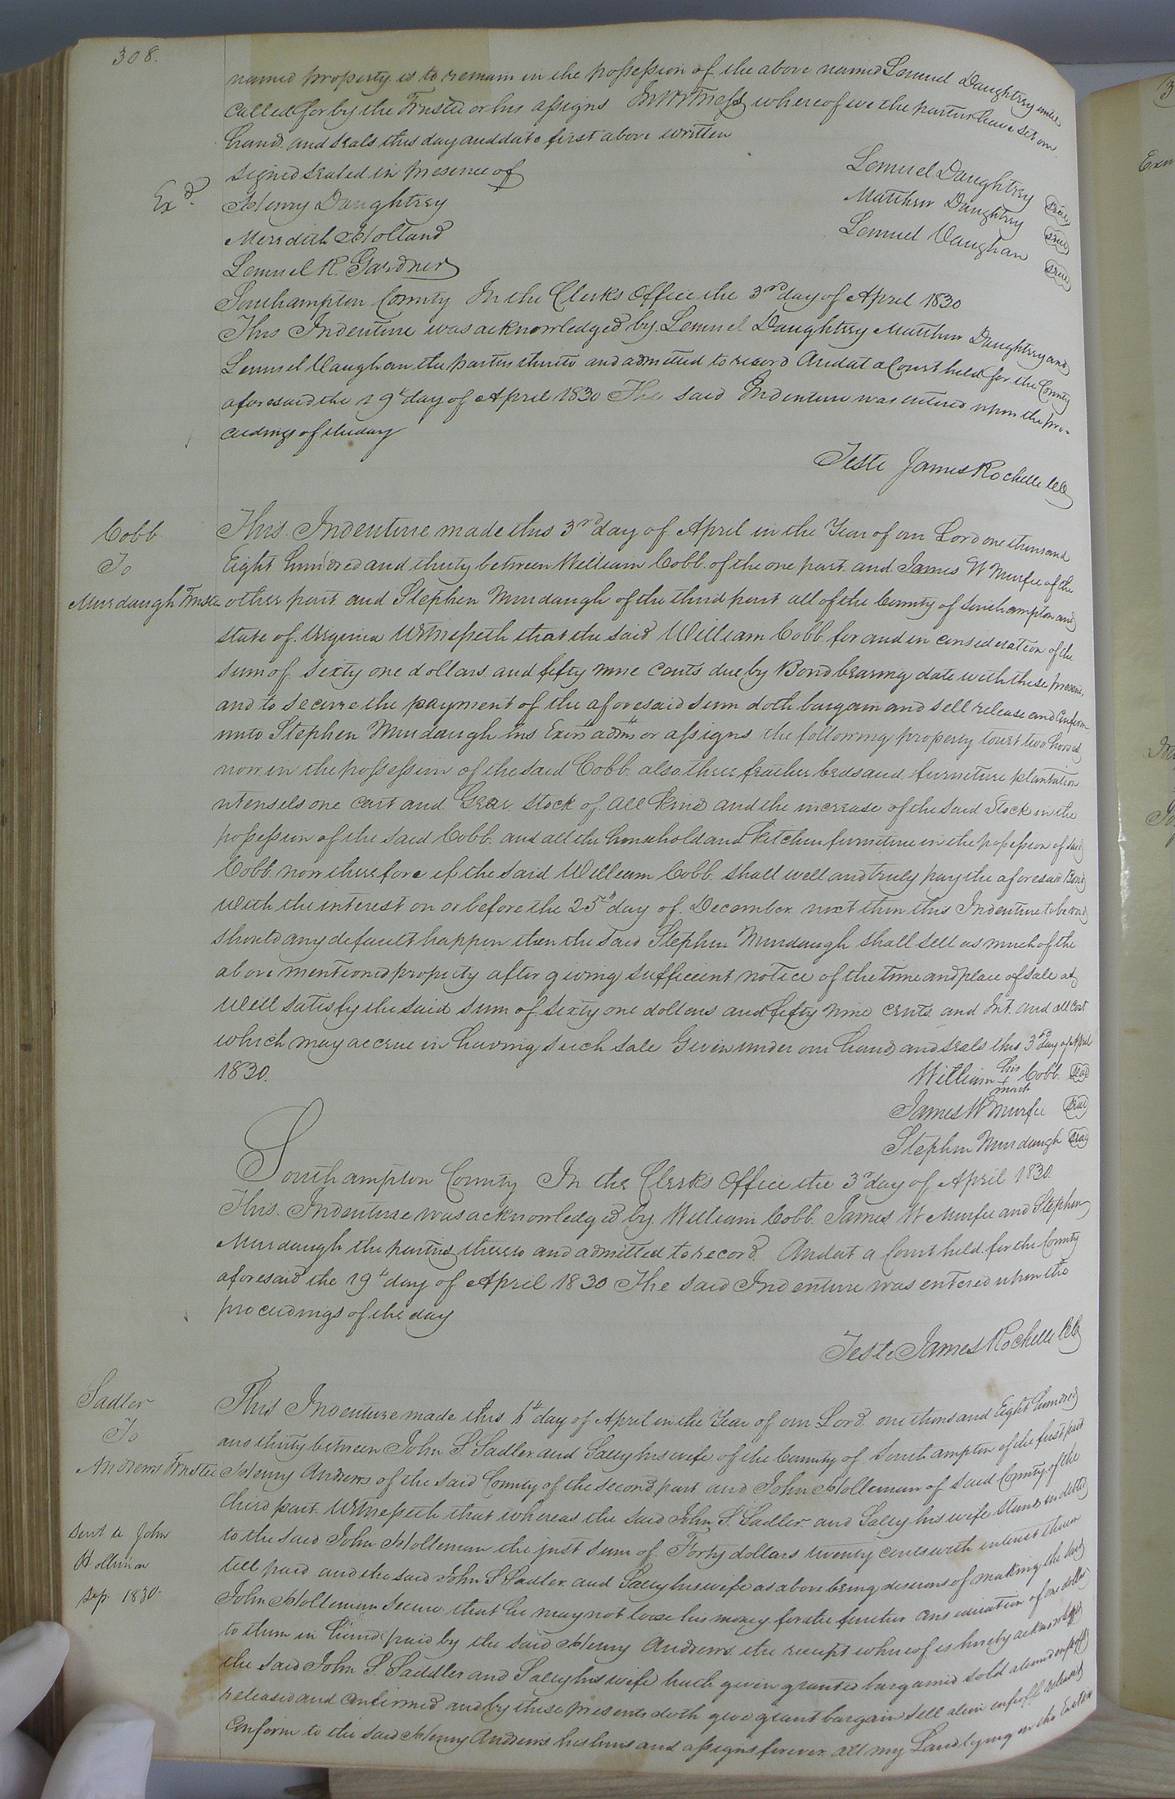 308.
named property is to remain in the possession of the above named Lemuel Daughtrey untill
Called for by the Trustee or his assigns In Witness whereof we the parties have set our
hand and seals this day and date first above written
Signed sealed in presence of
Lemuel Daughtrey seal
Exd.
Henry Daughtrey
Matthew Daughtry seal
Meredith Holland
Lemuel Vaughan seal
Lemuel R. Gardner
Southampton County In the Clerks Office the 3rd day of April 1830
This Indenture was acknowledged by Lemuel Daughtrey Matthew Daughtrey and
Lemuel Vaughan the parties thereto and admitted to record And at a Court held for the County
aforesaid the 19th day of April 1830 The said Indenture was entered upon the pro-
ceedings of the day
Teste James Rochelle Clk
Cobb
To
Murdaugh Trustee
This Indenture made this 3rd day of April in the Year of our Lord one thousand
Eight hundred and thirty between William Cobb of the one part and James W Murfee of the
other part and Stephen Murdaugh of the third part all of the County of Southampton and
state of Virginia Witnesseth that the said William Cobb for and in consideration of the
sum of sixty one dollars and fifty nine cents due by Bond bearing date with these presents
and to secure the payment of the aforesaid sum doth bargain and sell release and Confirm
unto Stephen Murdaugh his Exors admrs or assigns the following property towit two horses
now in the possession of the said Cobb also three feather beds and furniture plantation
utensels one cart and Gear stock of all kind and the increase of the said Stock in the
possession of the said Cobb and all the household and Kitchen furniture in the possession of said
Cobb now therefore if the said William Cobb shall well and truly pay the aforesaid Bond
with the interest on or before the 25th day of December next then this Indenture to be void
should any default happen then the said Stephen Murdaugh shall sell as much of the
above mentioned property after giving sufficient notice of the time and place of sale as
Will satisfy the said sum of sixty one dollars and fifty nine cents and Int. and all Cost
which may accrue in having such sale Given under our hand and seals this 3rd day of April
1830.
William his mark Cobb seal
James W Murfee seal
Stephen Murdaugh seal
Southampton County In the Clerks Office the 3rd day of April 1830.
This Indenture was acknowledged by William Cobb James W Murfee and Stephen
Murdaugh the parties thereto and admitted to record And at a Court held for the County
aforesaid the 19th day of April 1830 The said Indenture was entered upon the
proceedings of the day
Teste James Rochelle Clk
Sadler
To
Andrews Trustee
Sent to John
Holleman
Sep. 1830.
This Indenture made this 6th day of April in the Year of our Lord one thousand Eight hundred
and thirty between John S Sadler and Salley his wife of the County of Southampton of the first part
Henry Andrews of the said County of the second part and John Holleman of said County of the
third part Witnesseth that whereas the said John S. Sadler and Salley his wife stand indebted
to the said John Holleman the just sum of Forty dollars twenty cents with interest thereon
till paid and the said John S Sadler and Salley his wife as above being desirous of making the said
John Holleman secure that he may not loose his money for the further consideration of one dollar
to them in hand paid by the said Henry Andrews the receipt whereof is hereby acknowledged
the said John S Saddler and Salley his wife hath given granted bargained sold aliened enfeoffd
released and confirmed and by these presents doth give grant bargain sell alien enfeoff release
Confirm to the said Henry Andrews his heirs and assigns forever all my Land lying on the